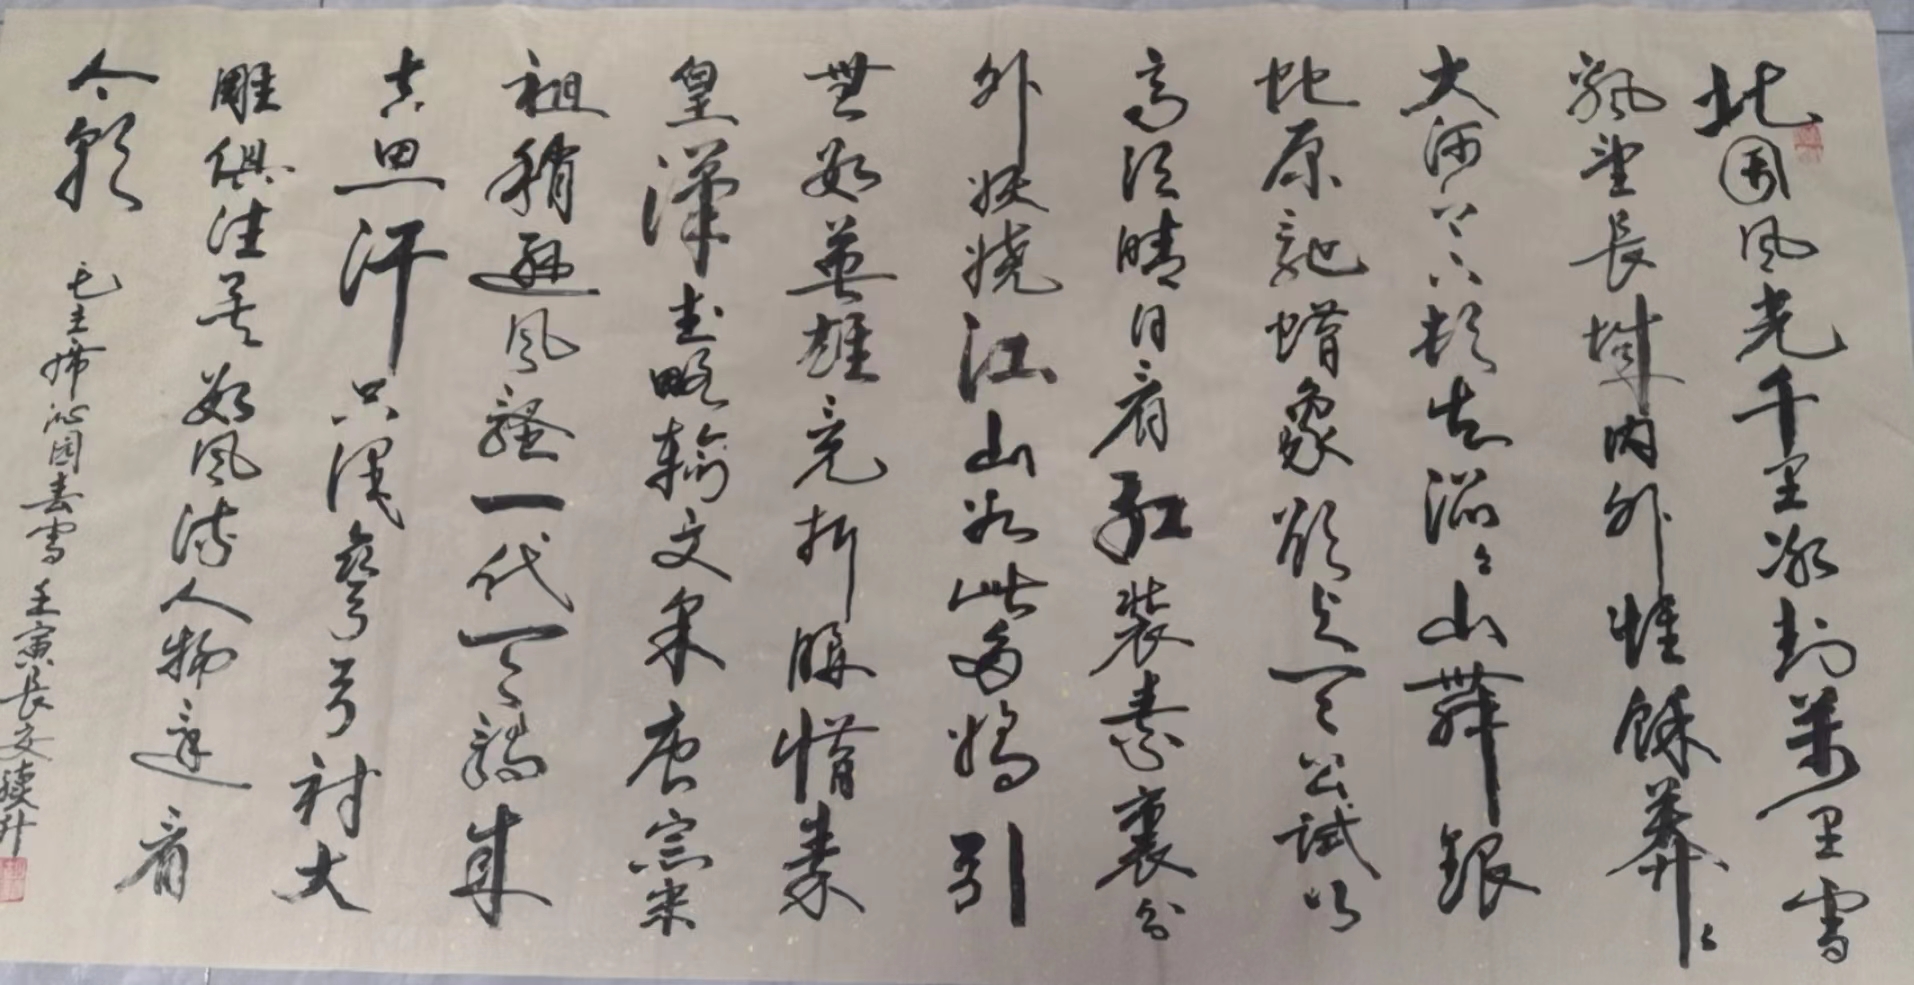 北国风光千里冰封萬里雪
飘望長城内外惟餘莽々
大河上下顿失滔々山舞銀
蛇原馳蜡象欲与天公試比
高须晴日看红装素裹分
外妖娆江山如此多娇引
無数英雄竞折腰惜秦
皇漢武略输文采唐宗宋
祖稍遜风騷一代天骄成
吉思汗只识弯弓射大
雕俱往矣数风流人物还看
今朝
毛主席沁园春雪 壬寅長安